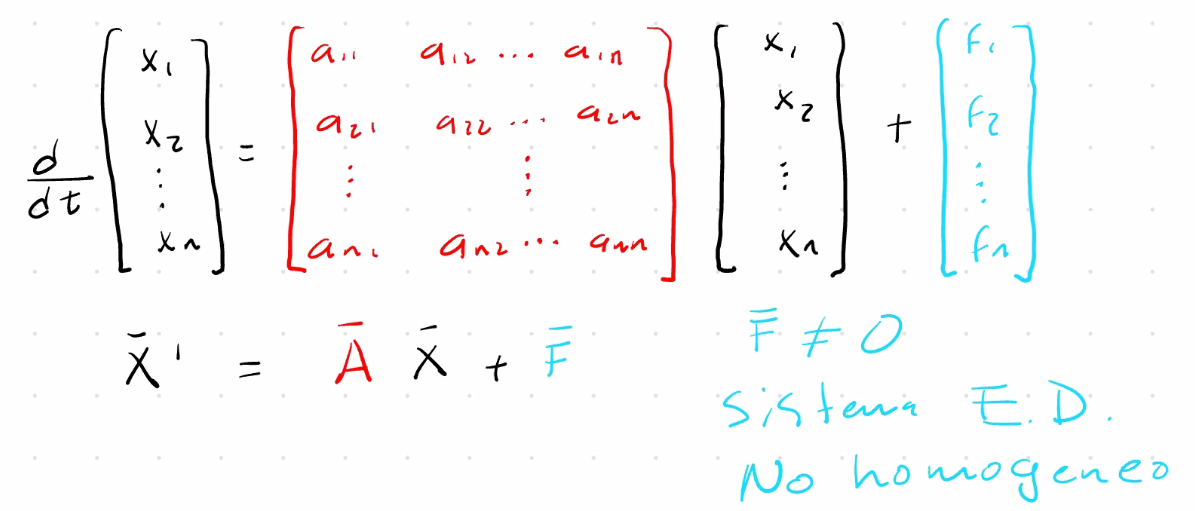 d/dt [x₁ x₂ ⋮ xₙ] = [a₁₁ a₁₂ ⋯ a₁ₙ; a₂₁ a₂₂ ⋯ a₂ₙ; ⋮ ⋮; aₙ₁ aₙ₂ ⋯ aₙₙ] [x₁ x₂ ⋮ xₙ] + [f₁ f₂ ⋮ fₙ]
X̄' = Ā X̄ + F̄
F̄ ≠ 0
Sistema E.D.
No homogeneo